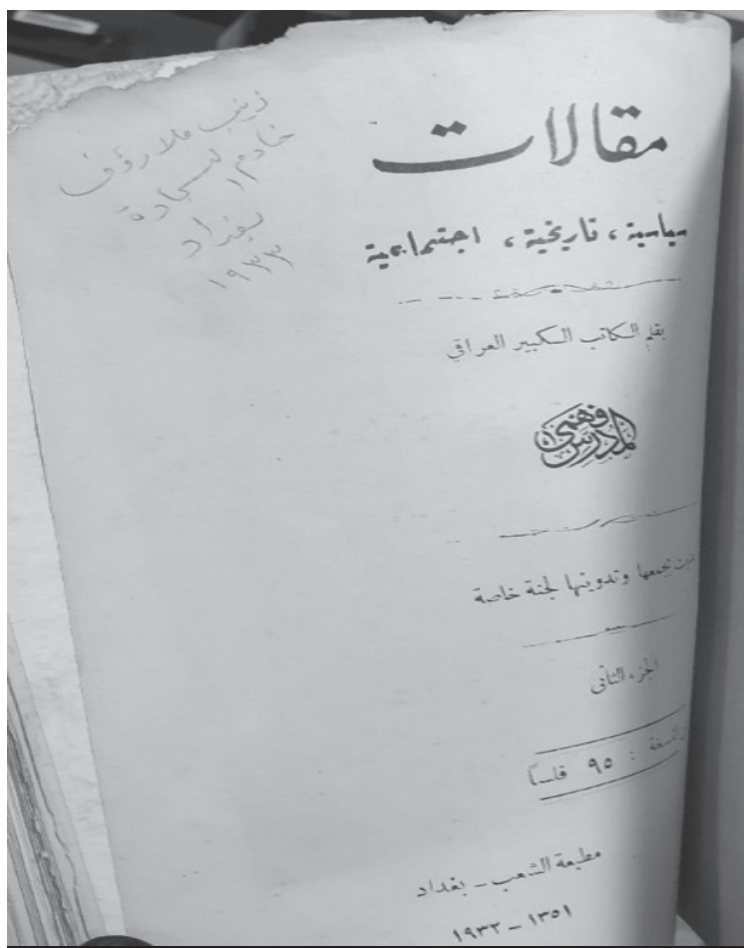 مقالات
سياسية ، تاريخية ، اجتماعية
بقلم الكاتب الكبير العراقي
فهمي المدرس
بجمعها وتدوينها لجنة خاصة
الجزء الثاني
النسخة : ٩٥ فلساً
مطبعة الشعب - بغداد
١٣٥١ - ١٩٣٢
زينب ملا رؤوف
خادم السجادة
بغداد
١٩٣٣